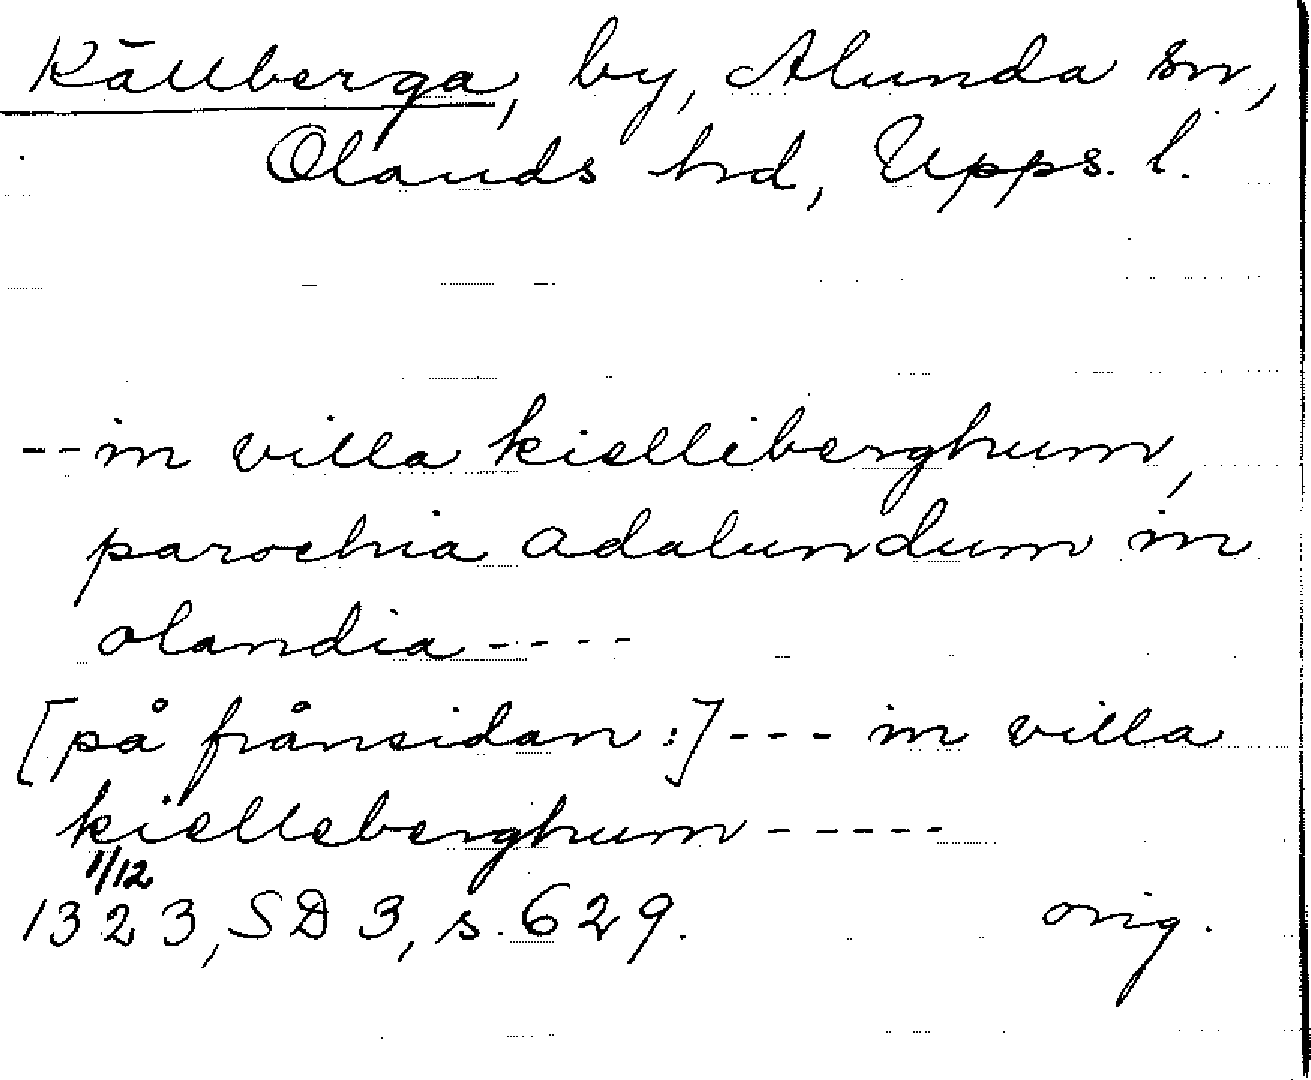 Källberga, by, Alunda sn,
Olands hd, Upps. l.
--in villa kielliberghum,
parochia adalundum in
olandia----
[på frånsidan:]--- in villa
kielleberghum-----
1/12
1323, SD 3, s. 629. orig.